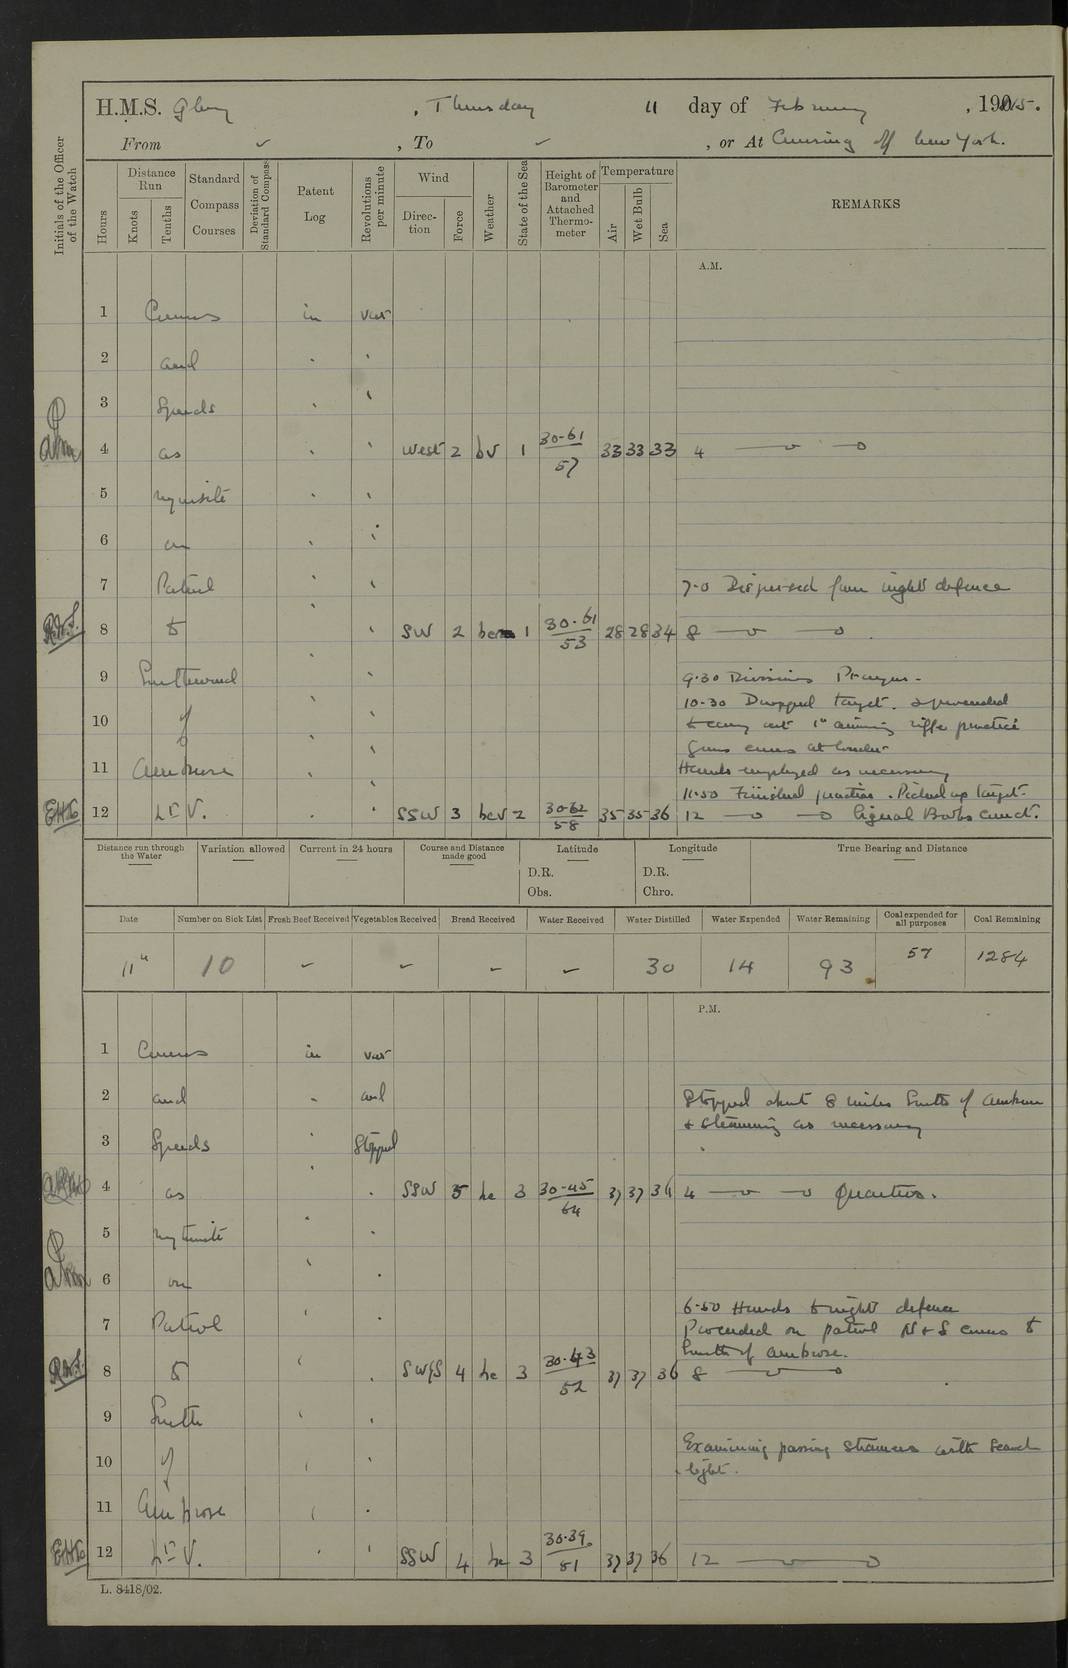 H.M.S. Glory, Thursday 11 day of February, 1915.
From ✓, To ✓, or At Cruising off New York.
Initials of the Officer of the Watch
Hours
Distance Run
Knots
Tenths
Standard Compass Courses
Deviation of Standard Compass
Patent Log
Revolutions per minute
Wind
Direction
Force
Weather
State of the Sea
Height of Barometer and Attached Thermometer
Temperature
Air
Wet Bulb
Sea
REMARKS
A.M.
1 Courses in var
2 and
3 Speeds
4 as West 2 bv 1 30-61 57 33 33 33 4
5 requisite
6 on
7 Patrol 7-0 Dispersed from night defence
8 to SW 2 bc 1 30.61 53 28 28 34 8
9 Southward 9.30 Divisions Prayers.
10-30 Dropped target. & proceeded
10 of to carry out 1" aiming rifle practice
Guns crews at
11 Ambrose Hands employed as necessary
11.50 Finished practice. Picked up target.
12 Lt V. SSW 3 bcv 2 30-62 58 35 35 36 12 Signal Boobs
Distance run through the Water
Variation allowed
Current in 24 hours
Course and Distance made good
Latitude
D.R.
Obs.
Longitude
D.R.
Chro.
True Bearing and Distance
Date Number on Sick List Fresh Beef Received Vegetables Received Bread Received Water Received Water Distilled Water Expended Water Remaining Coal expended for all purposes Coal Remaining
11th 10 - - - - 30 14 93 57 1284
P.M.
1 Courses in var
2 and and Stopped about 8 miles South of Ambrose
& Steaming as necessary
3 Speeds Stopped
4 as SSW 5 bc 3 30-45 64 37 37 36 4 Quarters.
5 requisite
6 on
6-50 Hands to night defence
7 Patrol Proceeded on patrol N & S courses to
South of Ambrose.
8 to SWxS 4 bc 3 30.43 52 37 37 36 8
9 South
Examining passing steamers with Search
10 of light.
11 Ambrose
12 Lt V. SSW 4 bc 3 30.39 81 37 37 36 12
L. 8418/02.